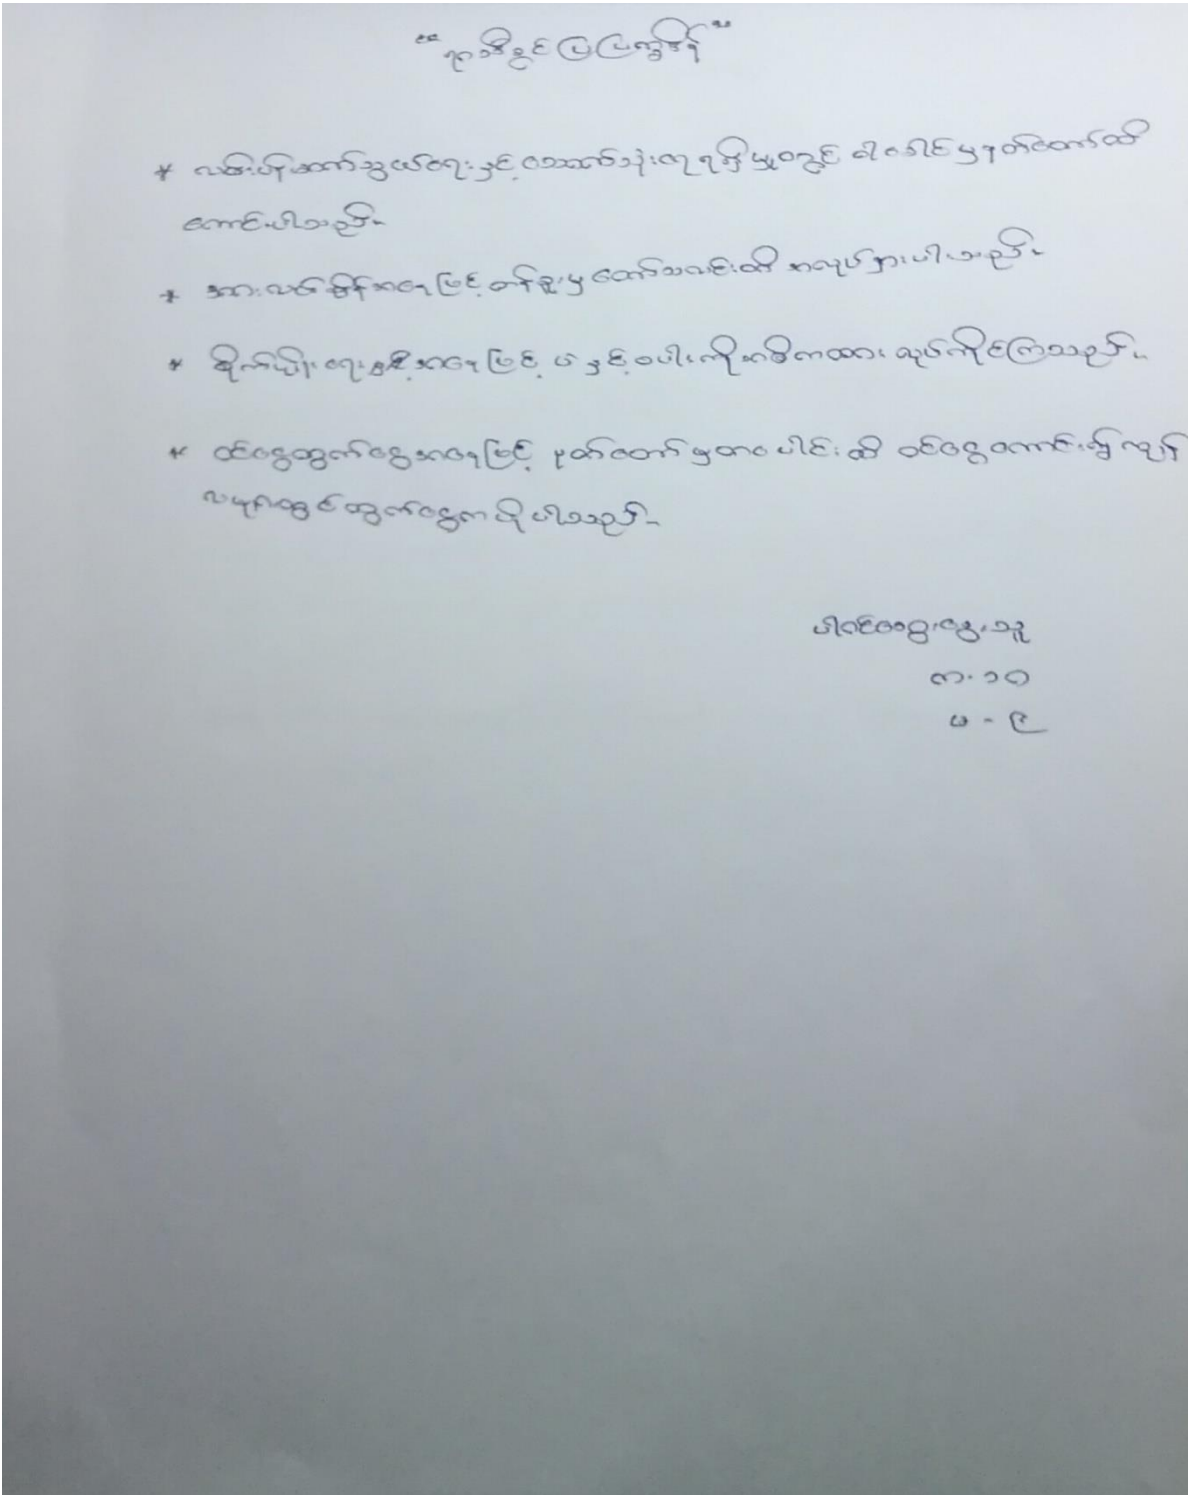 “ရာသီခွင်ပြပြက္ခဒိန်”
* လမ်းပန်းဆက်သွယ်ရေးနှင့် သောက်သုံးရေရရှိမှုတွင် ဝါခေါင်မှ နတ်တော်ထိ
ကောင်းပါသည်။
* အားလပ်ချိန်အနေဖြင့် တန်ခူးမှ တော်သလင်းထိ အလုပ်ရှားပါးသည်။
* စိုက်ပျိုးရေးနှင့်အနေဖြင့် ပဲနှင့်စပါးကိုအဓိကထား လုပ်ကိုင်ကြသည်။
* ဝင်ငွေထွက်ငွေအနေဖြင့် နတ်တော်မှတပေါင်းထိ ဝင်ငွေကောင်း၍ ကျန်
လများတွင်ထွက်ငွေကပိုပါသည်။
ပါဝင်ဆွေးနွေးသူ
က-၁၀
မ-၉